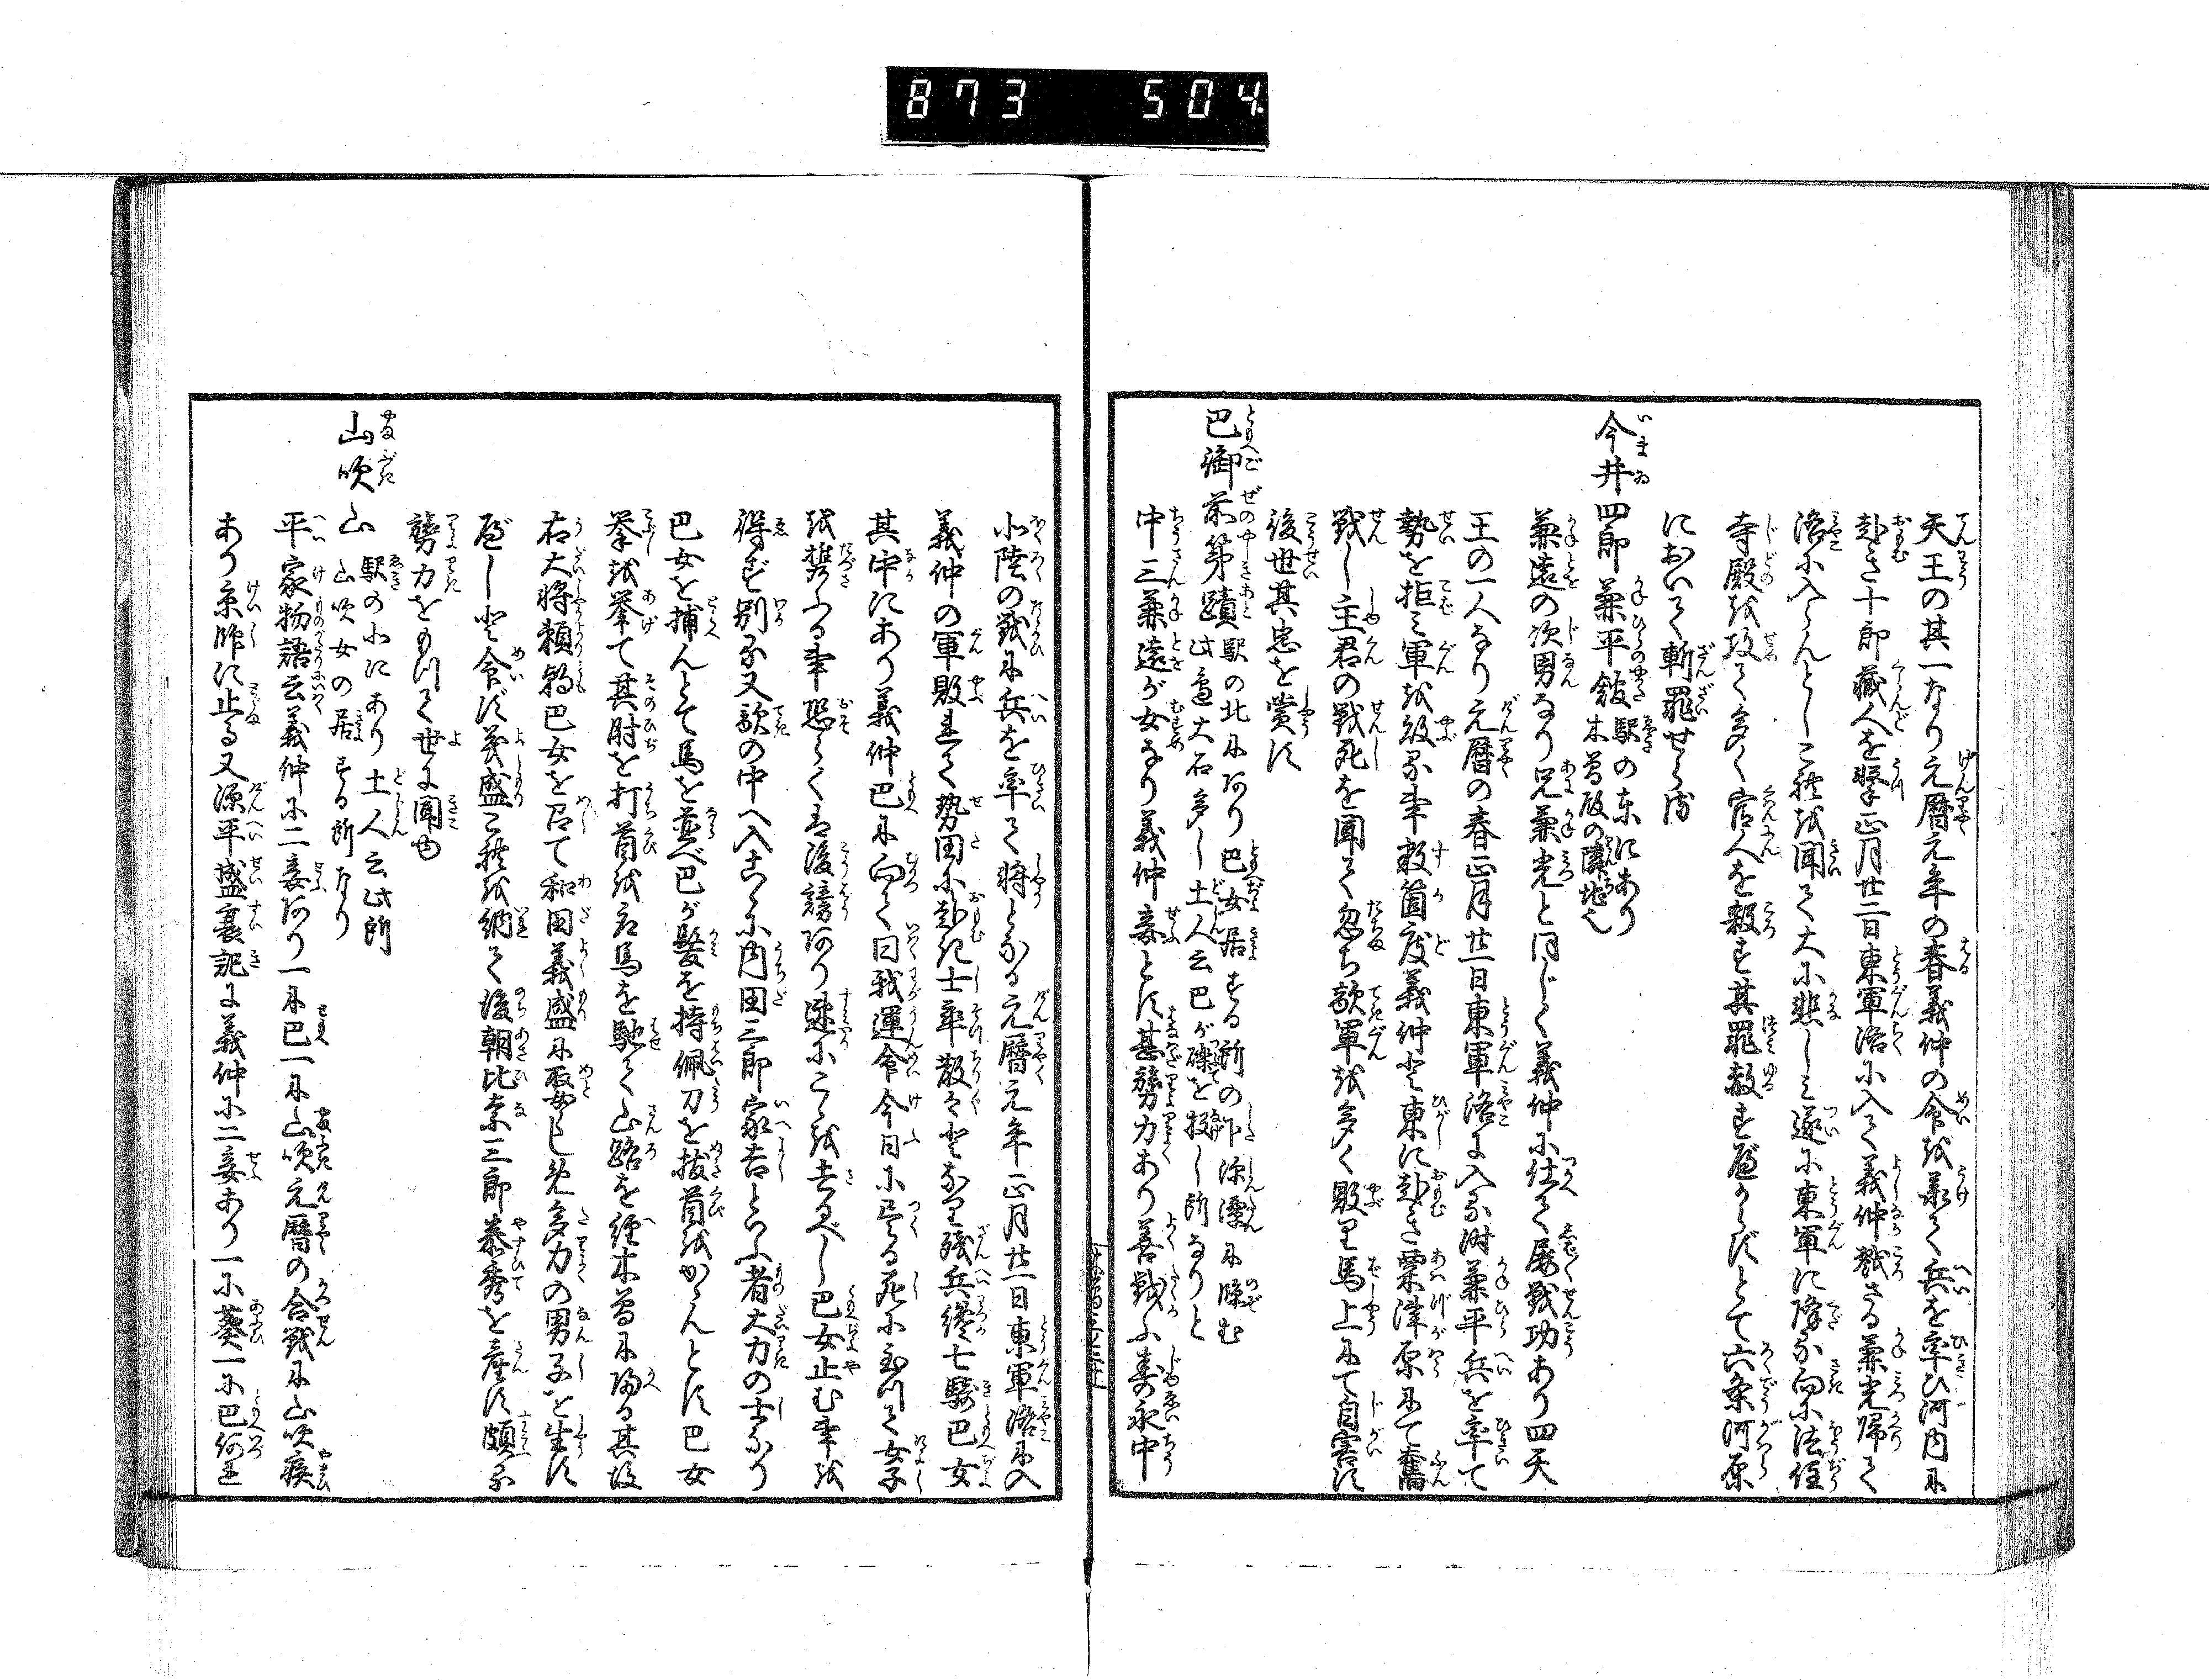 873 504
天王の其一なり元暦元年の春義仲の命を承て兵を率ひ河内に
赴き十郎蔵人を撃正月廿一日東軍洛に入て義仲戮さる兼光帰て
洛に入らんとしこれを聞て大に悲しミ遂に東軍に降る向に法住
寺殿を攻て多く官人を殺す其罪赦すべからずとて六条河原
において斬罪せらる
今井四郎兼平館 駅の東にあり
木曽殿の隣地也
兼遠の次男なり兄兼光と同じく義仲に仕へて屡戦功あり四天
王の一人なり元暦の春正月廿一日東軍洛に入る時兼平兵を率て
勢を拒ミ軍を破る事数箇度義仲と東に赴き粟津原にて奮
戦し主君の戦死を聞て忽ち敵軍を多く敗り馬上にて自害す
後世其忠を賞す
巴御前第蹟 駅の北にあり巴女居する所の下深潭に臨む
此辺大石多し土人云巴が礫を投し所なりと
中三兼遠が女なり義仲妾とす甚膂力あり善戦ふ寿永中
北陸の戦に兵を率て将となる元暦元年正月廿一日東軍洛に入
義仲の軍敗れて勢田に赴に士卒散々となり残兵纔七騎巴女
其中にあり義仲巴に向て曰我運命今日に尽る死に至つて女子
を携ふる事恐らくは後謗あり速にこゝを去るべし巴女止む事を
得ず別る又敵の中へ入こゝに内田三郎家吉といふ者大力の士なり
巴女を捕んとて馬を並べ巴が髪を持佩刀を抜首をかゝんとす巴女
拳を挙て其肘を打首を取馬を馳て山路を経木曽に帰る其後
右大将頼朝巴女を召て和田義盛に娶らしめ多力の男子を生す
べしと命ず義盛これを納て後朝比奈三郎義秀を産す頗る
膂力をもつて世に聞ゆ
山吹山 駅の北にあり土人云此所
山吹女の居する所なり
平家物語云義仲に二妾あり一に巴一に山吹元暦の合戦に山吹疾
あり京師に止る又源平盛衰記に義仲に二妾あり一に葵一に巴何れ